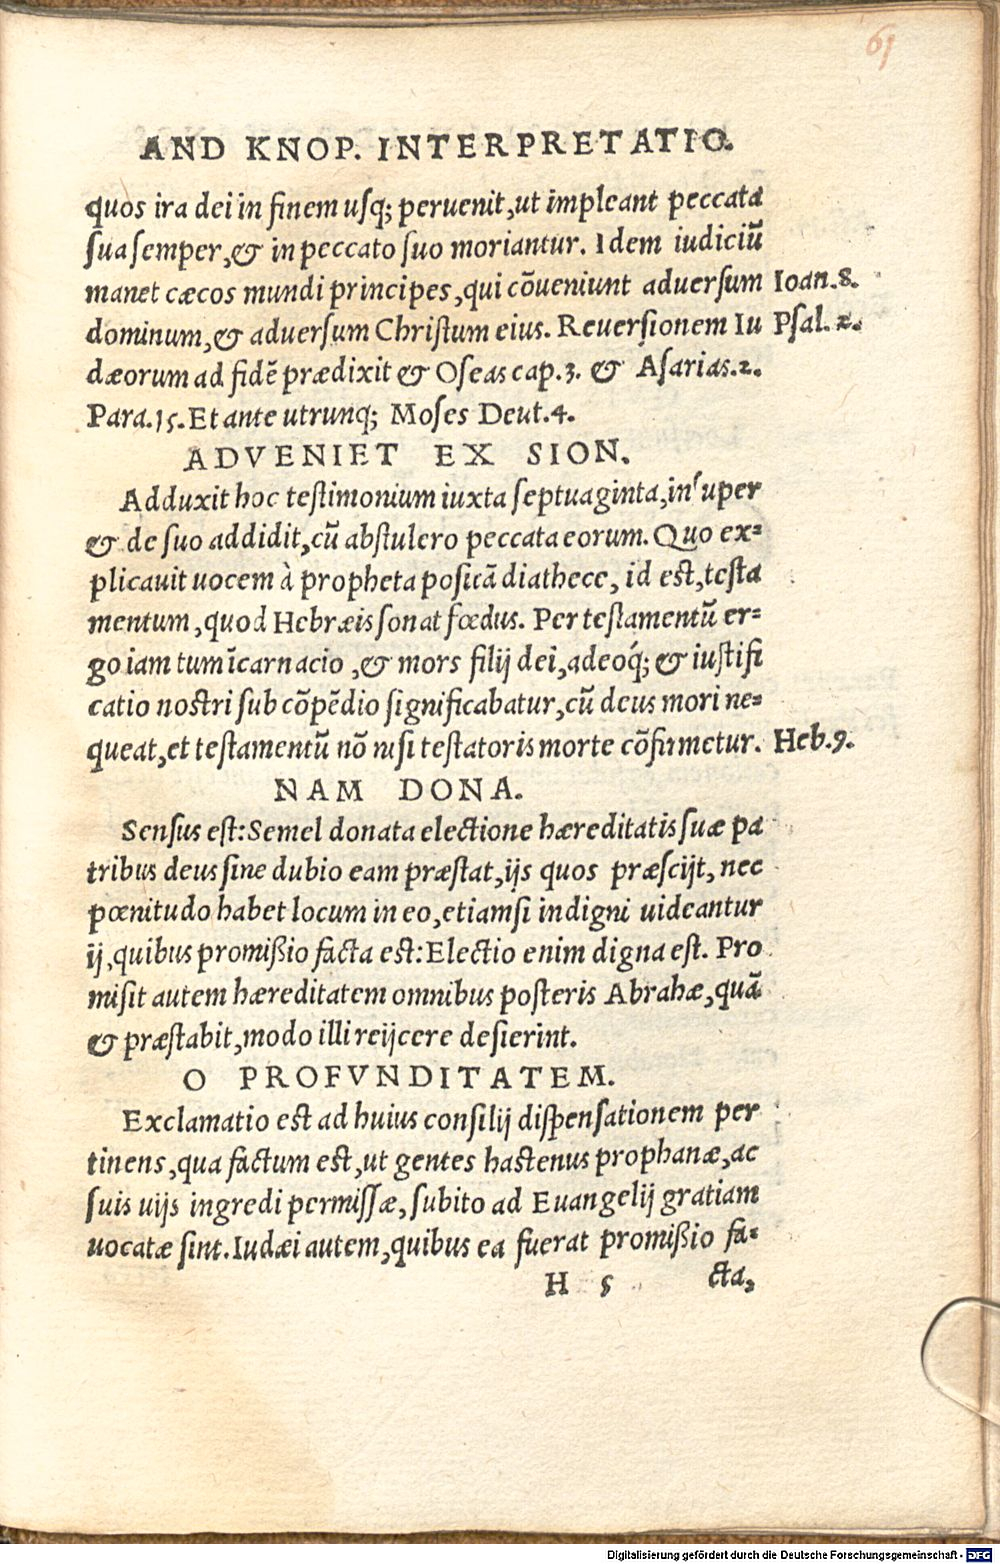 61
AND KNOP. INTERPRETATIO.
quos ira dei in finem usq; peruenit, ut impleant peccata
sua semper, & in peccato suo moriantur. Idem iudiciũ
manet cæcos mundi principes, qui cõueniunt aduersum Ioan.8.
dominum, & aduersum Christum eius. Reuersionem Iu Psal.2.
dæorum ad fidẽ prædixit & Oseas cap.3. & Asarias.2.
Para.15. Et ante utrunq; Moses Deut.4.
ADVENIET EX SION.
Adduxit hoc testimonium iuxta septuaginta, insuper
& de suo addidit, cũ abstulero peccata eorum. Quo ex=
plicauit uocem à propheta positã diathece, id est, testa
mentum, quod Hebræis sonat fœdus. Per testamentũ er=
go iam tum ĩcarnacio, & mors filij dei, adeoq́; & iustifi
catio nostri sub cõpẽdio significabatur, cũ deus mori ne=
queat, et testamentũ nõ nisi testatoris morte cõfirmetur. Heb.9.
NAM DONA.
Sensus est: Semel donata electione hæreditatis suæ pa
tribus deus sine dubio eam præstat, ijs quos præscijt, nec
pœnitudo habet locum in eo, etiamsi indigni uideantur
ij, quibus promißio facta est: Electio enim digna est. Pro
misit autem hæreditatem omnibus posteris Abrahæ, quã
& præstabit, modo illi reijcere desierint.
O PROFVNDITATEM.
Exclamatio est ad huius consilij dispensationem per
tinens, qua factum est, ut gentes hactenus prophanæ, ac
suis uijs ingredi permissæ, subito ad Euangelij gratiam
uocatæ sint. Iudæi autem, quibus ea fuerat promißio fa-
H 5 cta,
Digitalisierung gefördert durch die Deutsche Forschungsgemeinschaft - DFG